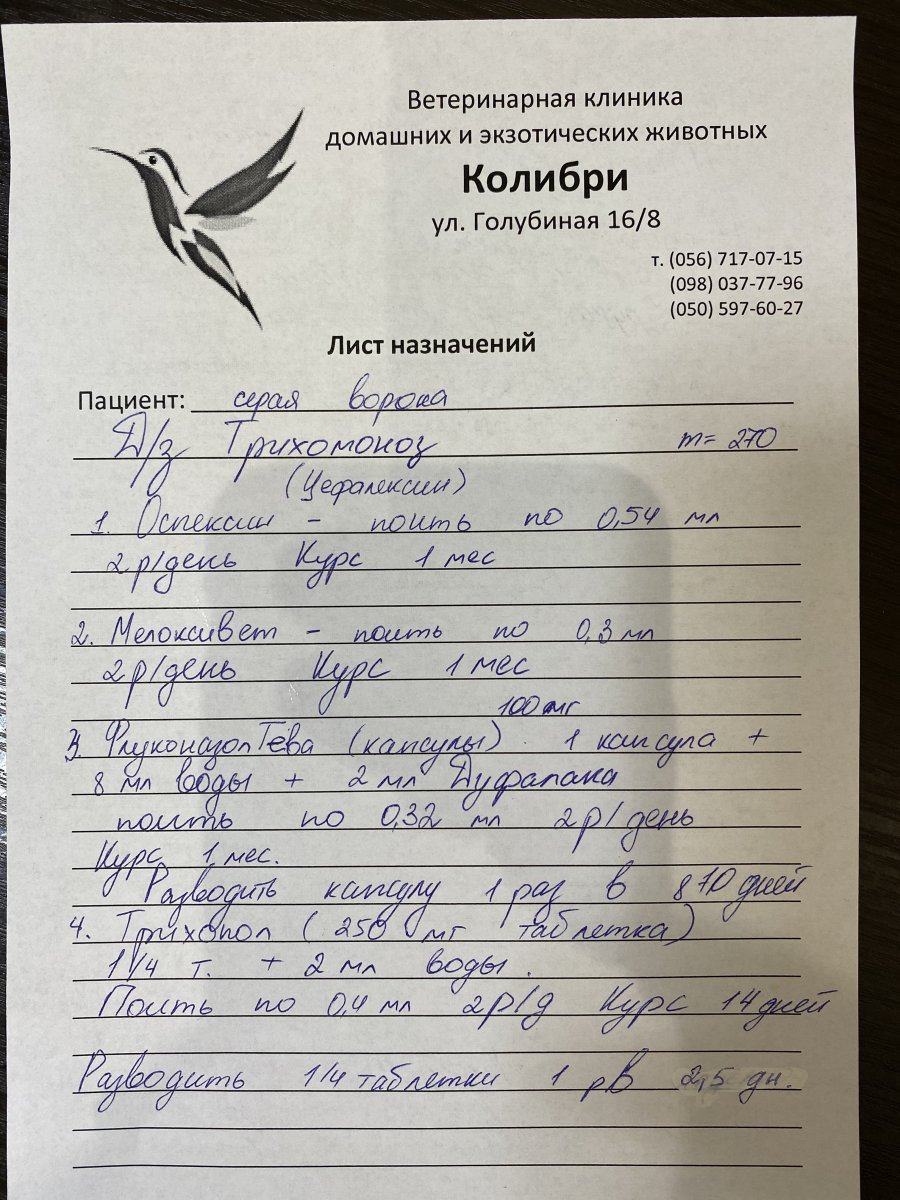 Ветеринарная клиника
домашних и экзотических животных
Колибри
ул. Голубиная 16/8
т. (056) 717-07-15
(098) 037-77-96
(050) 597-60-27
Лист назначений
Пациент: серая ворона
Д/з Трихомоноз m= 270
(Цефалексин)
1. Оспексин - поить по 0,54 мл
2р/день Курс 1 мес
2. Мелоксивет - поить по 0,3 мл
2р/день Курс 1 мес
100 мг
3. Флуконазол Тева (капсулы) 1 капсула +
8 мл воды + 2 мл Дуфалака
поить по 0,32 мл 2р/день
Курс 1 мес.
Разводить капсулу 1 раз в 10 дней
4. Трихопол (250 мг таблетка)
1/4 т. + 2 мл воды.
Поить по 0,4 мл 2р/д Курс 14 дней
Разводить 1/4 таблетки 1 рВ 2,5 дн.